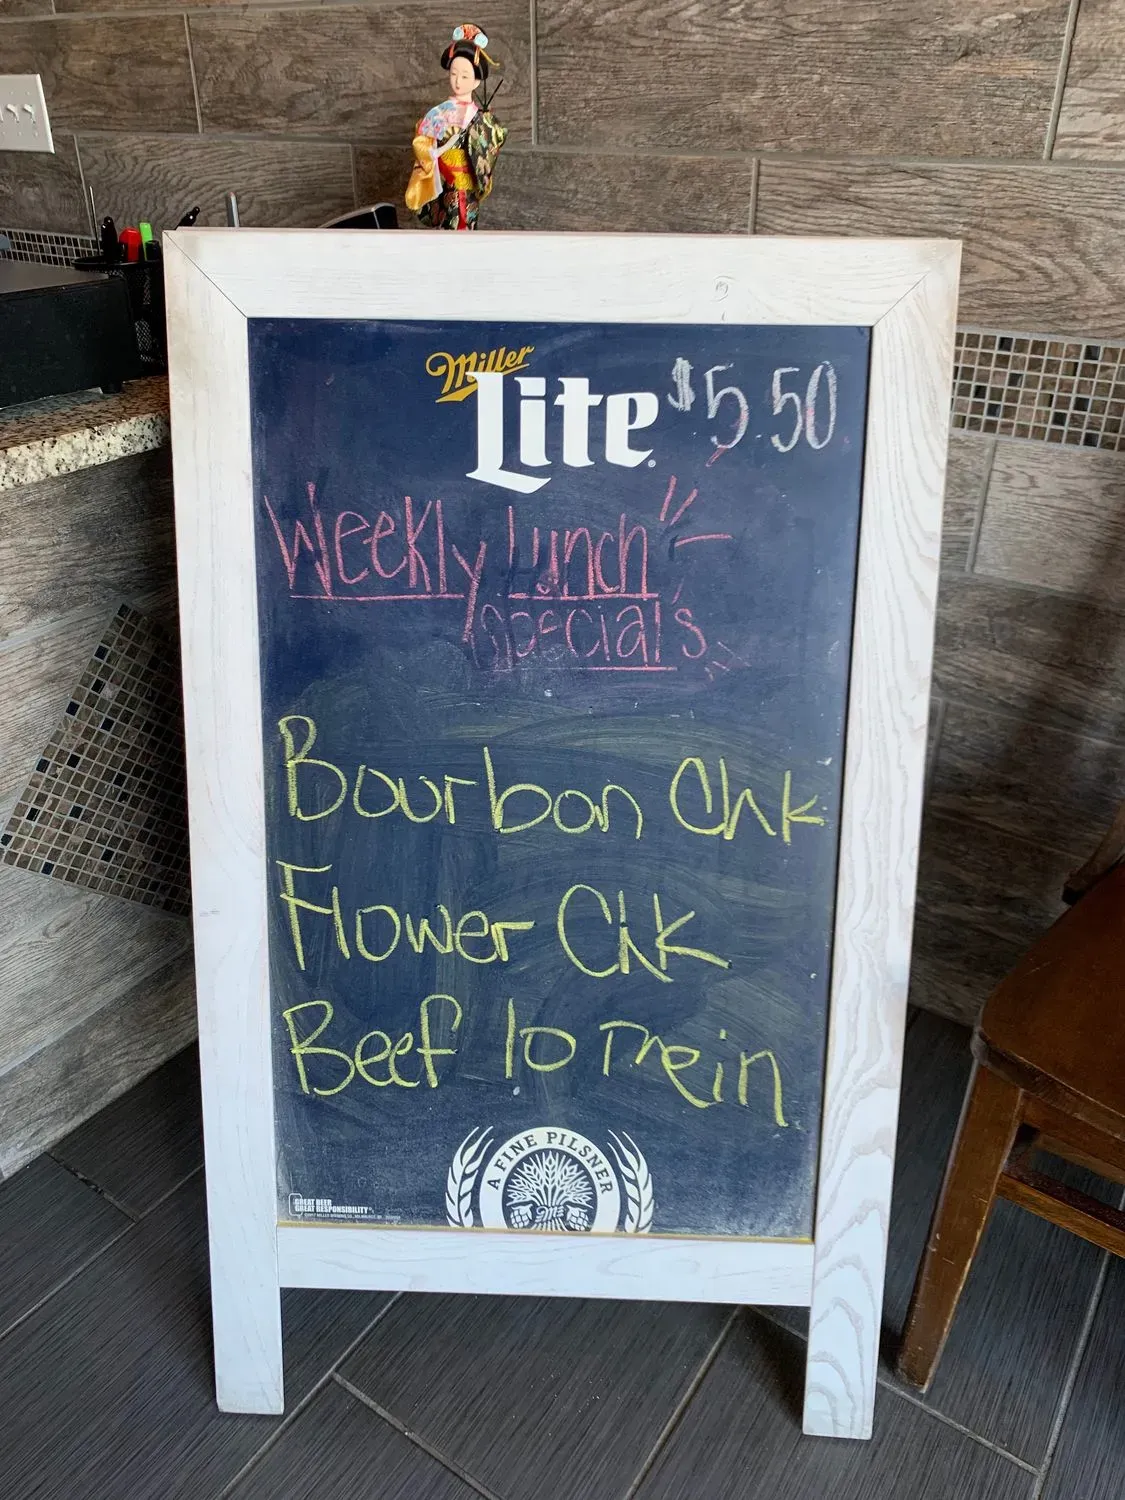 Miller
Lite $5.50
Weekly Lunch
Special's
Bourbon Chk
Flower Chk
Beef lo mein
A FINE PILSNER
GREAT BEER
GREAT RESPONSIBILITY